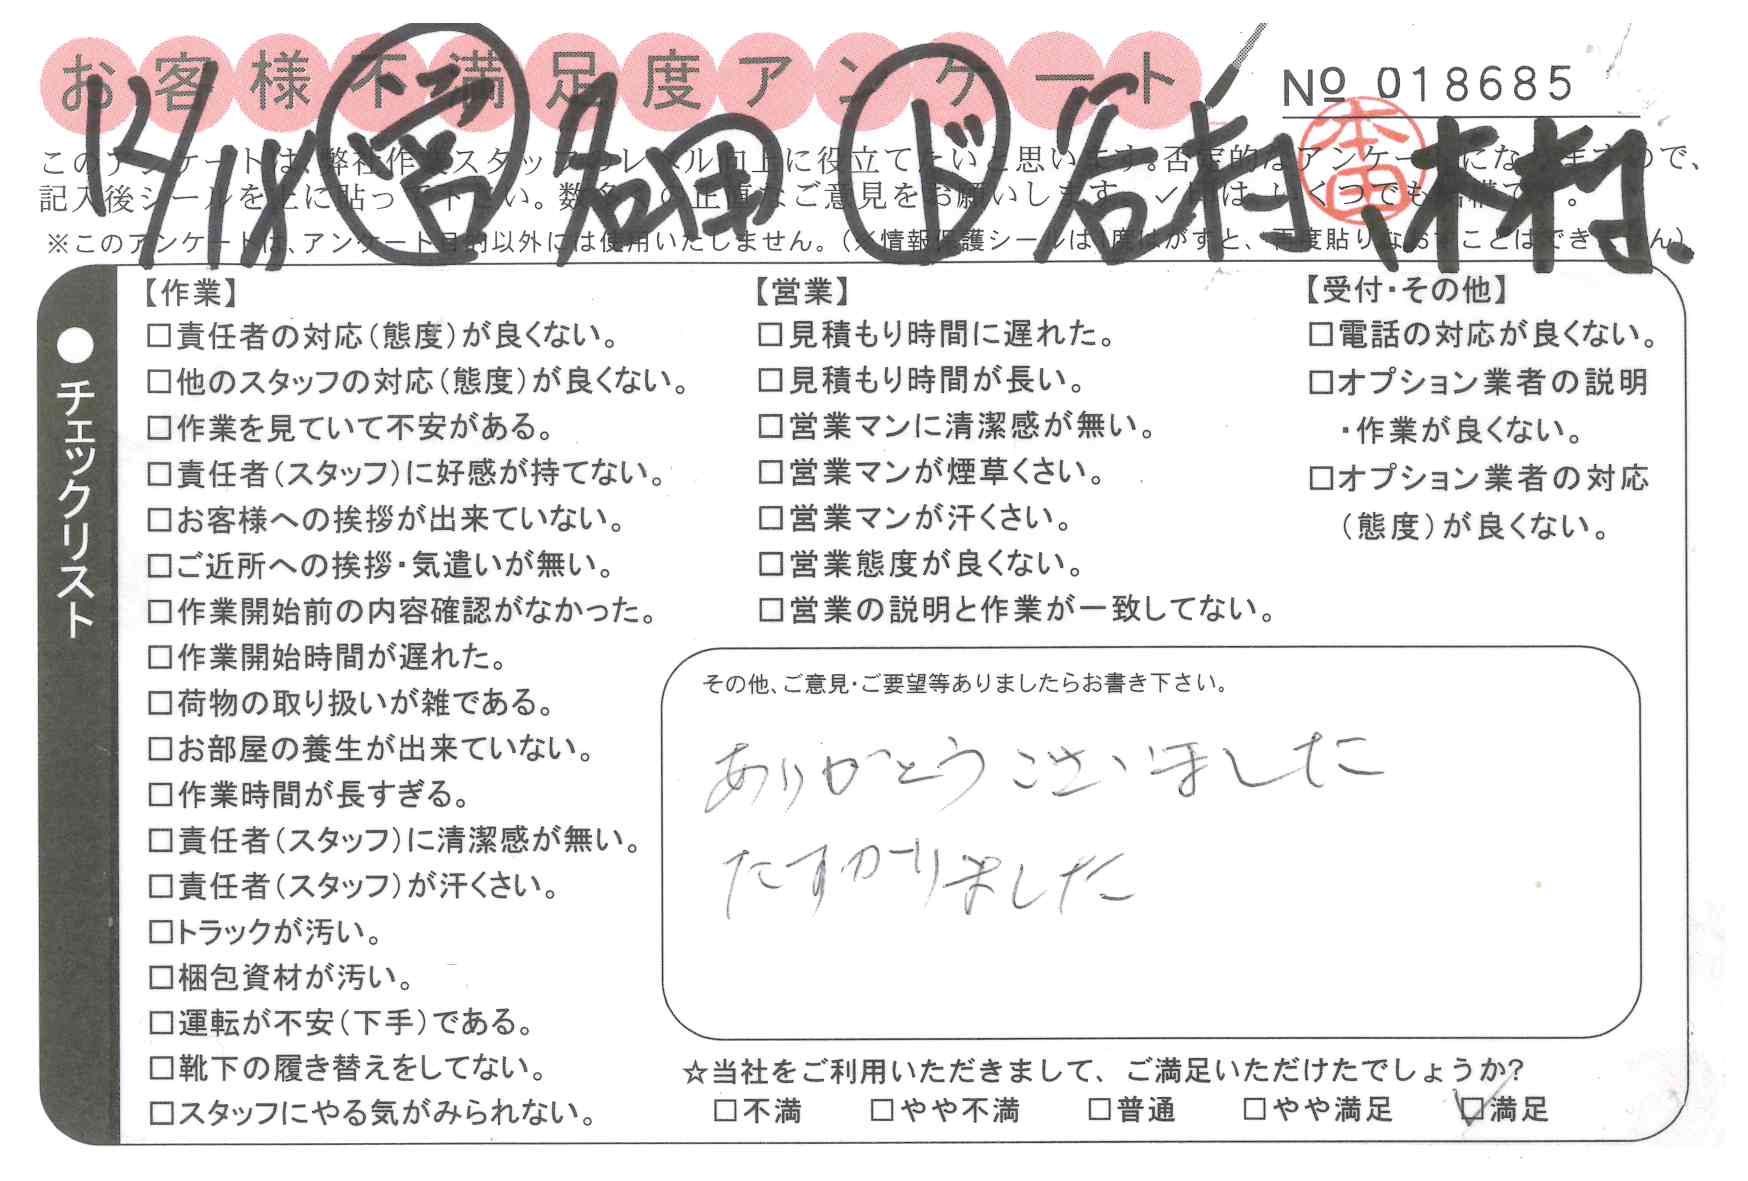 お客様不満足度アンケート
No 018685
12/18 営 名田 ド 岩村、木村、
本田
このアンケートは、弊社作業スタッフのレベル向上に役立てたいと思います。否定的なアンケートになりますので、
記入後シールを上に貼って下さい。数多くの正直なご意見をお願いします。✓印はいくつでも結構です。
※このアンケートは、アンケート目的以外には使用いたしません。(※情報保護シールは1度はがすと、再度貼りなおすことはできません)
●チェックリスト
【作業】
□責任者の対応(態度)が良くない。
□他のスタッフの対応(態度)が良くない。
□作業を見ていて不安がある。
□責任者(スタッフ)に好感が持てない。
□お客様への挨拶が出来ていない。
□ご近所への挨拶・気遣いが無い。
□作業開始前の内容確認がなかった。
□作業開始時間が遅れた。
□荷物の取り扱いが雑である。
□お部屋の養生が出来ていない。
□作業時間が長すぎる。
□責任者(スタッフ)に清潔感が無い。
□責任者(スタッフ)が汗くさい。
□トラックが汚い。
□梱包資材が汚い。
□運転が不安(下手)である。
□靴下の履き替えをしてない。
□スタッフにやる気がみられない。
【営業】
□見積もり時間に遅れた。
□見積もり時間が長い。
□営業マンに清潔感が無い。
□営業マンが煙草くさい。
□営業マンが汗くさい。
□営業態度が良くない。
□営業の説明と作業が一致してない。
【受付・その他】
□電話の対応が良くない。
□オプション業者の説明
・作業が良くない。
□オプション業者の対応
(態度)が良くない。
その他、ご意見・ご要望等ありましたらお書き下さい。
ありがとうございました
たすかりました
☆当社をご利用いただきまして、ご満足いただけたでしょうか?
□不満 □やや不満 □普通 □やや満足 ☑満足